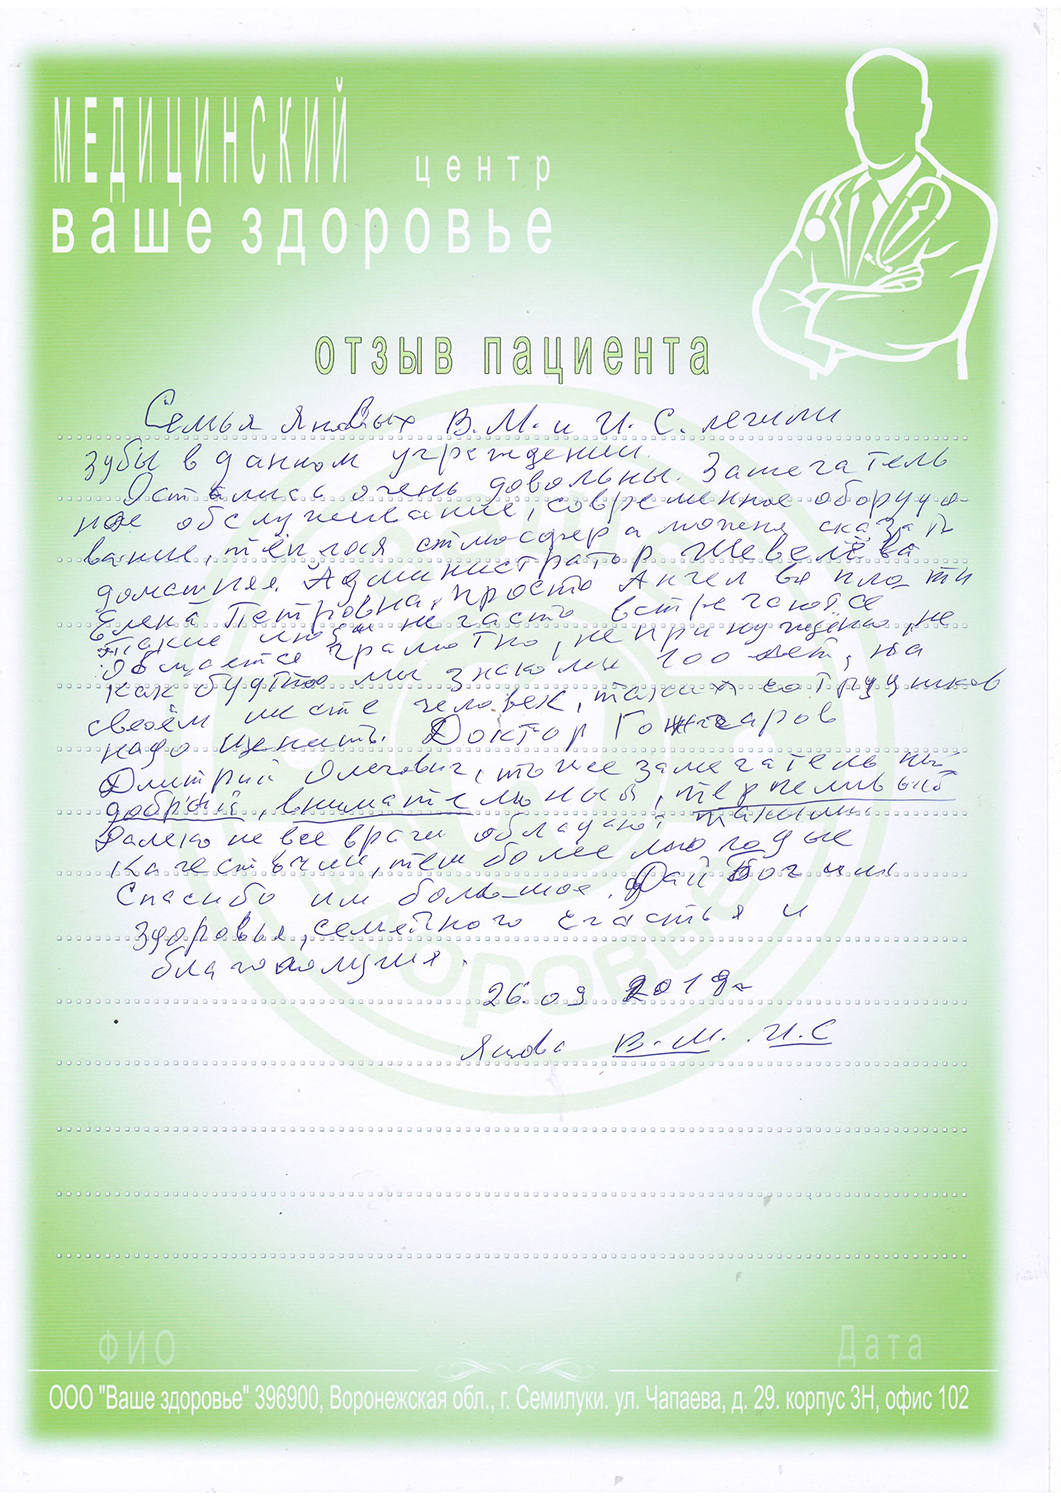 МЕДИЦИНСКИЙ центр
ваше здоровье
отзыв пациента
Семья Яновых В.М. и И.С. лечили
зубы в данном учреждении.
Остались очень довольны. Замечатель
ное обслуживание, современное оборудо-
вание, тёплая атмосфера можно сказать
домашняя. Администратор Шевелёва
Елена Петровна, просто Ангел во плоти
Такие люди не часто встречаются
Общается грамотно, непринуждённо, не
как будто мы знакомы 100 лет, на
своём месте человек, таких сотрудников
надо ценить. Доктор Гончаров
Дмитрий Олегович, тоже замечательный
добрый, внимательный, терпеливый
Далеко не все врачи обладают такими
качествами, тем более молодые
Спасибо им большое. Дай Бог им
здоровья, семейного счастья и
благополучия.
26.09 2019г
Янова В.М. И.С
ЗДОРОВЬЕ
ФИО Дата
ООО "Ваше здоровье" 396900, Воронежская обл., г. Семилуки. ул. Чапаева, д. 29. корпус 3Н, офис 102